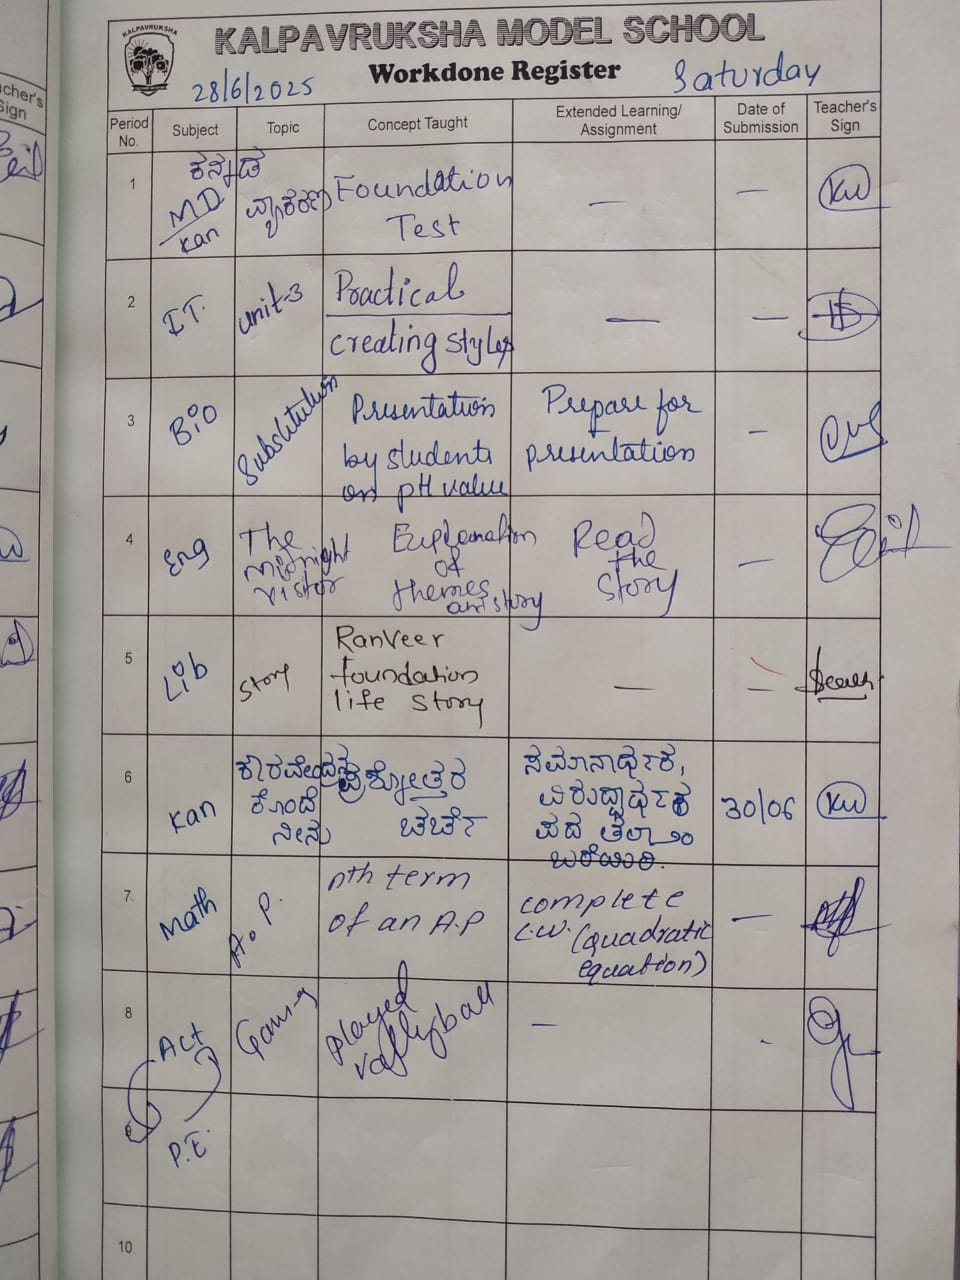 KALPAVRUKSHA
KALPAVRUKSHA MODEL SCHOOL
28/6/2025 Workdone Register Saturday
Period No. Subject Topic Concept Taught Extended Learning/ Assignment Date of Submission Teacher's Sign
1 ಕನ್ನಡ MD/Kan ವ್ಯಾಕರಣ Foundation Test — —
2 I.T. unit-3 Practical creating styles — —
3 Bio Substitution Presentation by students on pH value Prepare for presentation —
4 Eng The midnight visitor Explanation of themes and story Read the story —
5 Lib Story Ranveer foundation life story — —
6 Kan ಕೌರವೇಂದ್ರನ ಕೊಂದೆ ನೀನು ಪ್ರಶ್ನೋತ್ತರ ಚರ್ಚೆ ಸಮಾನಾರ್ಥಕ, ವಿರುದ್ಧಾರ್ಥಕ ಪದ ಬರೆಯಿರಿ. 30/06
7 Math A.P. nth term of an A.P complete C.W. (quadratic equation) —
8 Act played volleyball —
P.E.
10